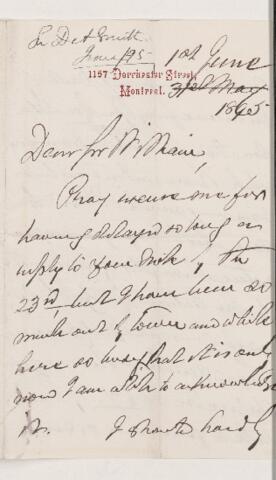 Sir D A Smith
June 1/95
1157 Dorchester Street,
Montreal.
1st June
31st May
1895
Dear Sir William,
Pray excuse me for
having delayed so long in
reply to your note of the
23rd, but I have been so
much out of town and while
here so busy that it is only
now I am able to acknowledge
it. I should hardly